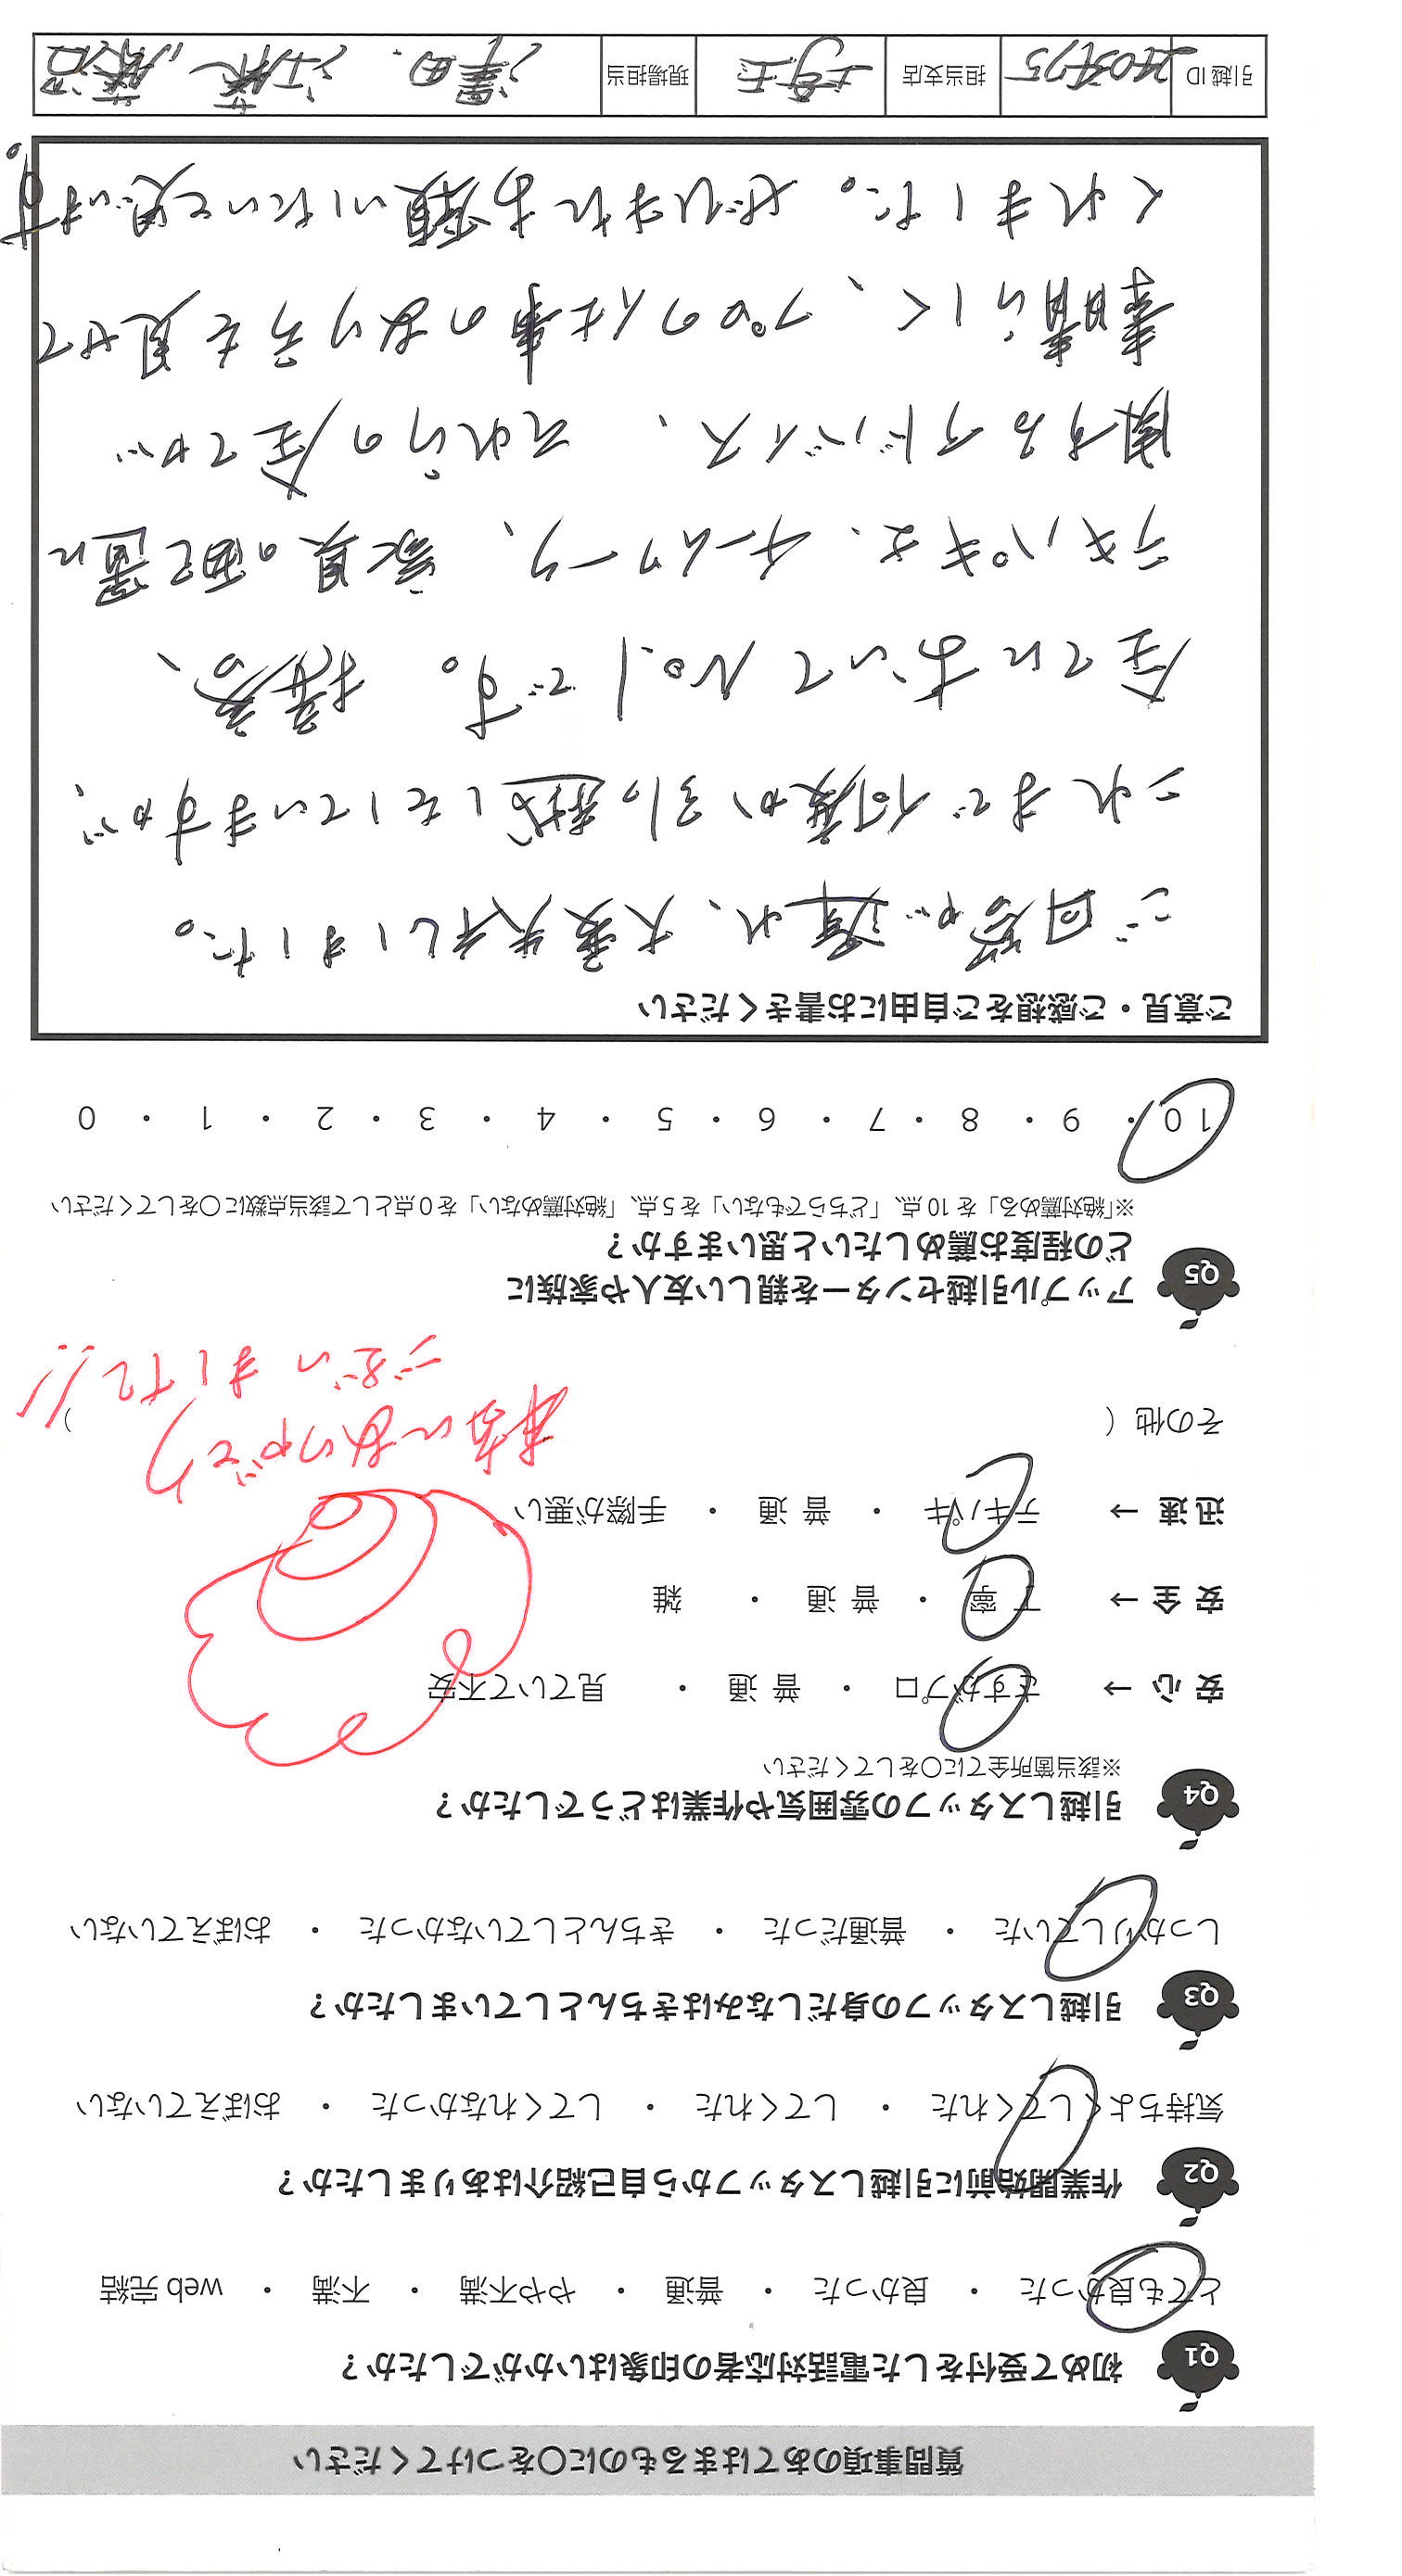 質問事項のあてはまるものに〇をつけてください
Q1 初めて受付をした電話対応者の印象はいかがでしたか？
とても良かった ・ 良かった ・ 普通 ・ やや不満 ・ 不満 ・ web 完結
Q2 作業開始前に引越しスタッフから自己紹介はありましたか？
気持ちよくしてくれた ・ してくれた ・ してくれなかった ・ おぼえていない
Q3 引越しスタッフの身だしなみはきちんとしていましたか？
しっかりしていた ・ 普通だった ・ きちんとしていなかった ・ おぼえていない
Q4 引越しスタッフの雰囲気や作業はどうでしたか？
※該当箇所全てに〇をしてください
安 心 → さすがプロ ・ 普 通 ・ 見ていて不安
安 全 → 丁 寧 ・ 普 通 ・ 雑
迅 速 → テキパキ ・ 普 通 ・ 手際が悪い
その他（ ）
本当にありがとう
ございました!!
Q5 アップル引越センターを親しい友人や家族に
どの程度お薦めしたいと思いますか？
※「絶対薦める」を 10 点、「どちらでもない」を 5 点、「絶対薦めない」を 0 点として該当点数に〇をしてください
10 ・ 9 ・ 8 ・ 7 ・ 6 ・ 5 ・ 4 ・ 3 ・ 2 ・ 1 ・ 0
ご意見・ご感想をご自由にお書きください
ご回答が遅れ、大変失礼しました。
これまで何度か引っ越しをしていますが、
全てにおいてNo.1です。 接客、
テキパキさ、チームワーク、家具の配置に
関するアドバイス、 それらの全てが
素晴らしく、プロの仕事のあり方を見せて
くれました。ぜひまたお願いしたいと思います。
引越 ID 担当支店 埼玉 現場担当 澤田、